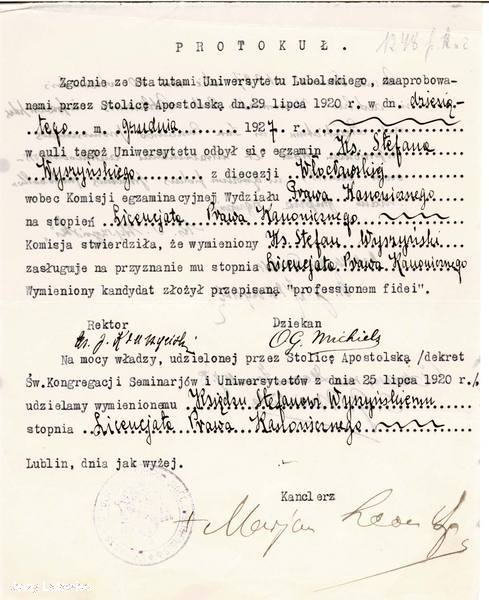 P R O T O K U Ł .
Zgodnie ze Statutami Uniwersytetu Lubelskiego, zaaprobowa-
nemi przez Stolicę Apostolską dn.29 lipca 1920 r. w dn. dziesią-
tego m. grudnia 1927 r.
w auli tegoż Uniwersytetu odbył się egzamin Ks. Stefana
Wyszyńskiego z diecezji Włocławskiej
wobec Komisji egzaminacyjnej Wydziału Prawa Kanonicznego
na stopień Licencjata Prawa Kanonicznego
Komisja stwierdziła, że wymieniony Ks. Stefan Wyszyński
zasługuje na przyznanie mu stopnia Licencjata Prawa Kanonicznego
Wymieniony kandydat złożył przepisaną "professionem fidei".
Rektor Dziekan
Ks. J. O.G. Michiels
Na mocy władzy, udzielonej przez Stolicę Apostolską /dekret
Św.Kongregacji Seminarjów i Uniwersytetów z dnia 25 lipca 1920 r./
udzielamy wymienionemu Księdzu Stefanowi Wyszyńskiemu
stopnia Licencjata Prawa Kanonicznego
Lublin, dnia jak wyżej.
Kanclerz
+ Marjan